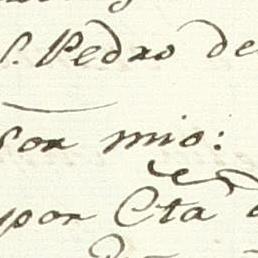 S. Pedro de
Sor mio:
por Cta